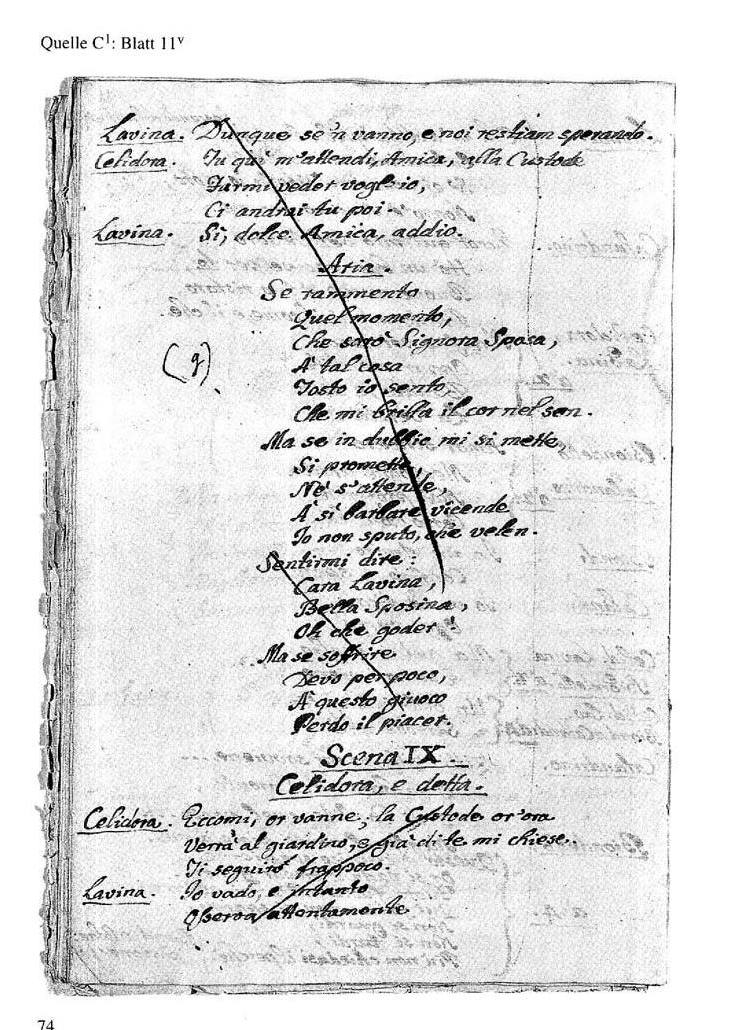 Quelle C¹: Blatt 11ᵛ
Lavina. Dunque se'n vanno, e noi restiam sperando.
Celidora. Tu quì m'attendi, Amica, alla Custode
Farmi veder vogl'io,
Ci andrai tu poi.
Lavina. Sì, dolce Amica, addio.
Aria.
Se rammento
Quel momento,
Che sarò Signora Sposa,
A tal cosa
Tosto io sento,
Che mi brilla il cor nel sen.
Ma se in dubbio mi si mette,
Si promette,
Nè s'attende,
A sì barbare vicende
Io non sputo, che velen.
Sentirmi dire:
Cara Lavina,
Bella Sposina,
Oh che goder!
Ma se soffrire
Devo per poco,
A questo giuoco
Perdo il piacer.
(g)
Scena IX.
Celidora, e detta.
Celidora. Eccomi, or vanne; la Custode or'ora
Verrà al giardino, e già di te mi chiese.
Ti seguirò frappoco.
Lavina. Io vado, e intanto
Osserva attentamente
74